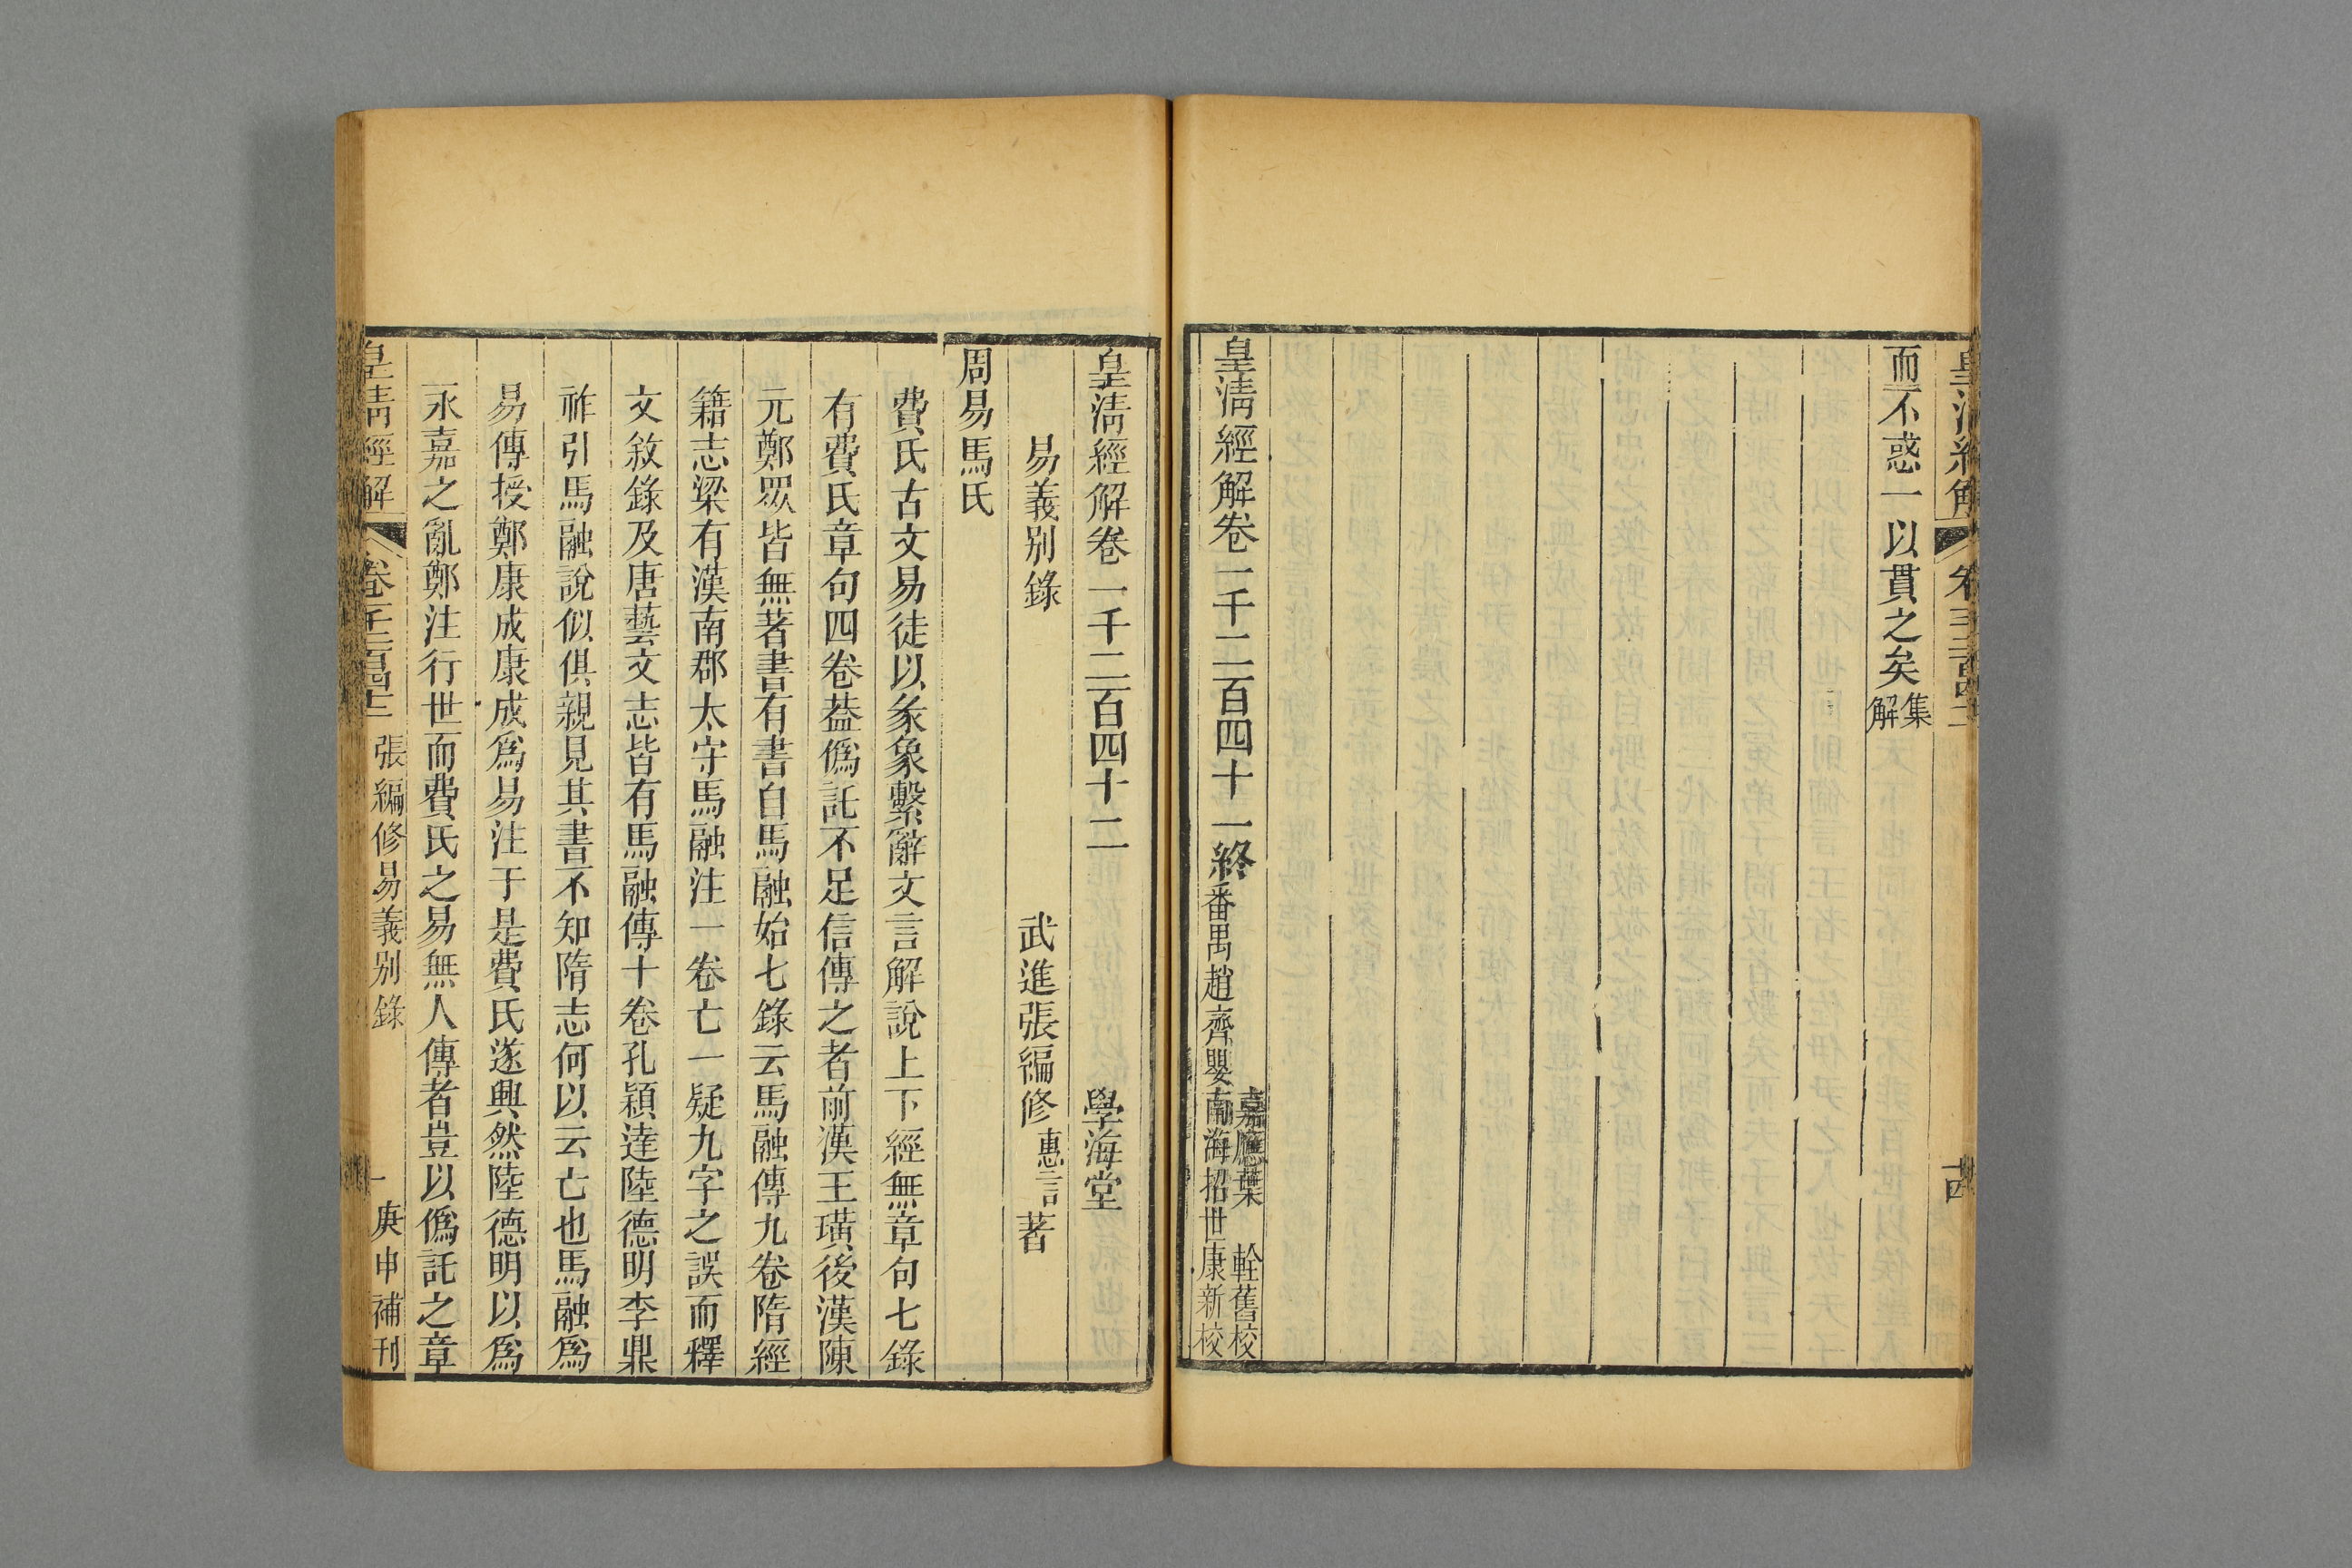 而不惑一以貫之矣集解
皇清經解卷一千二百四十一終
番禺趙齊嬰南海招世康新校
嘉應葉 輇舊校
皇清經解卷一千二百四十二 學海堂
易義別錄 武進張編修惠言著
周易馬氏
費氏古文易徒以彖象繫辭文言解說上下經無章句七錄
有費氏章句四卷葢僞託不足信傳之者前漢王璜後漢陳
元鄭眾皆無著書有書自馬融始七錄云馬融傳九卷隋經
籍志梁有漢南郡太守馬融注一卷亡一疑九字之誤而釋
文敘錄及唐藝文志皆有馬融傳十卷孔穎達陸德明李鼎
祚引馬融說似俱親見其書不知隋志何以云亡也馬融爲
易傳授鄭康成康成爲易注于是費氏遂興然陸德明以爲
永嘉之亂鄭注行世而費氏之易無人傳者豈以僞託之章
皇清經解 卷一千二百四十二 張編修易義別錄 一 庚申補刊